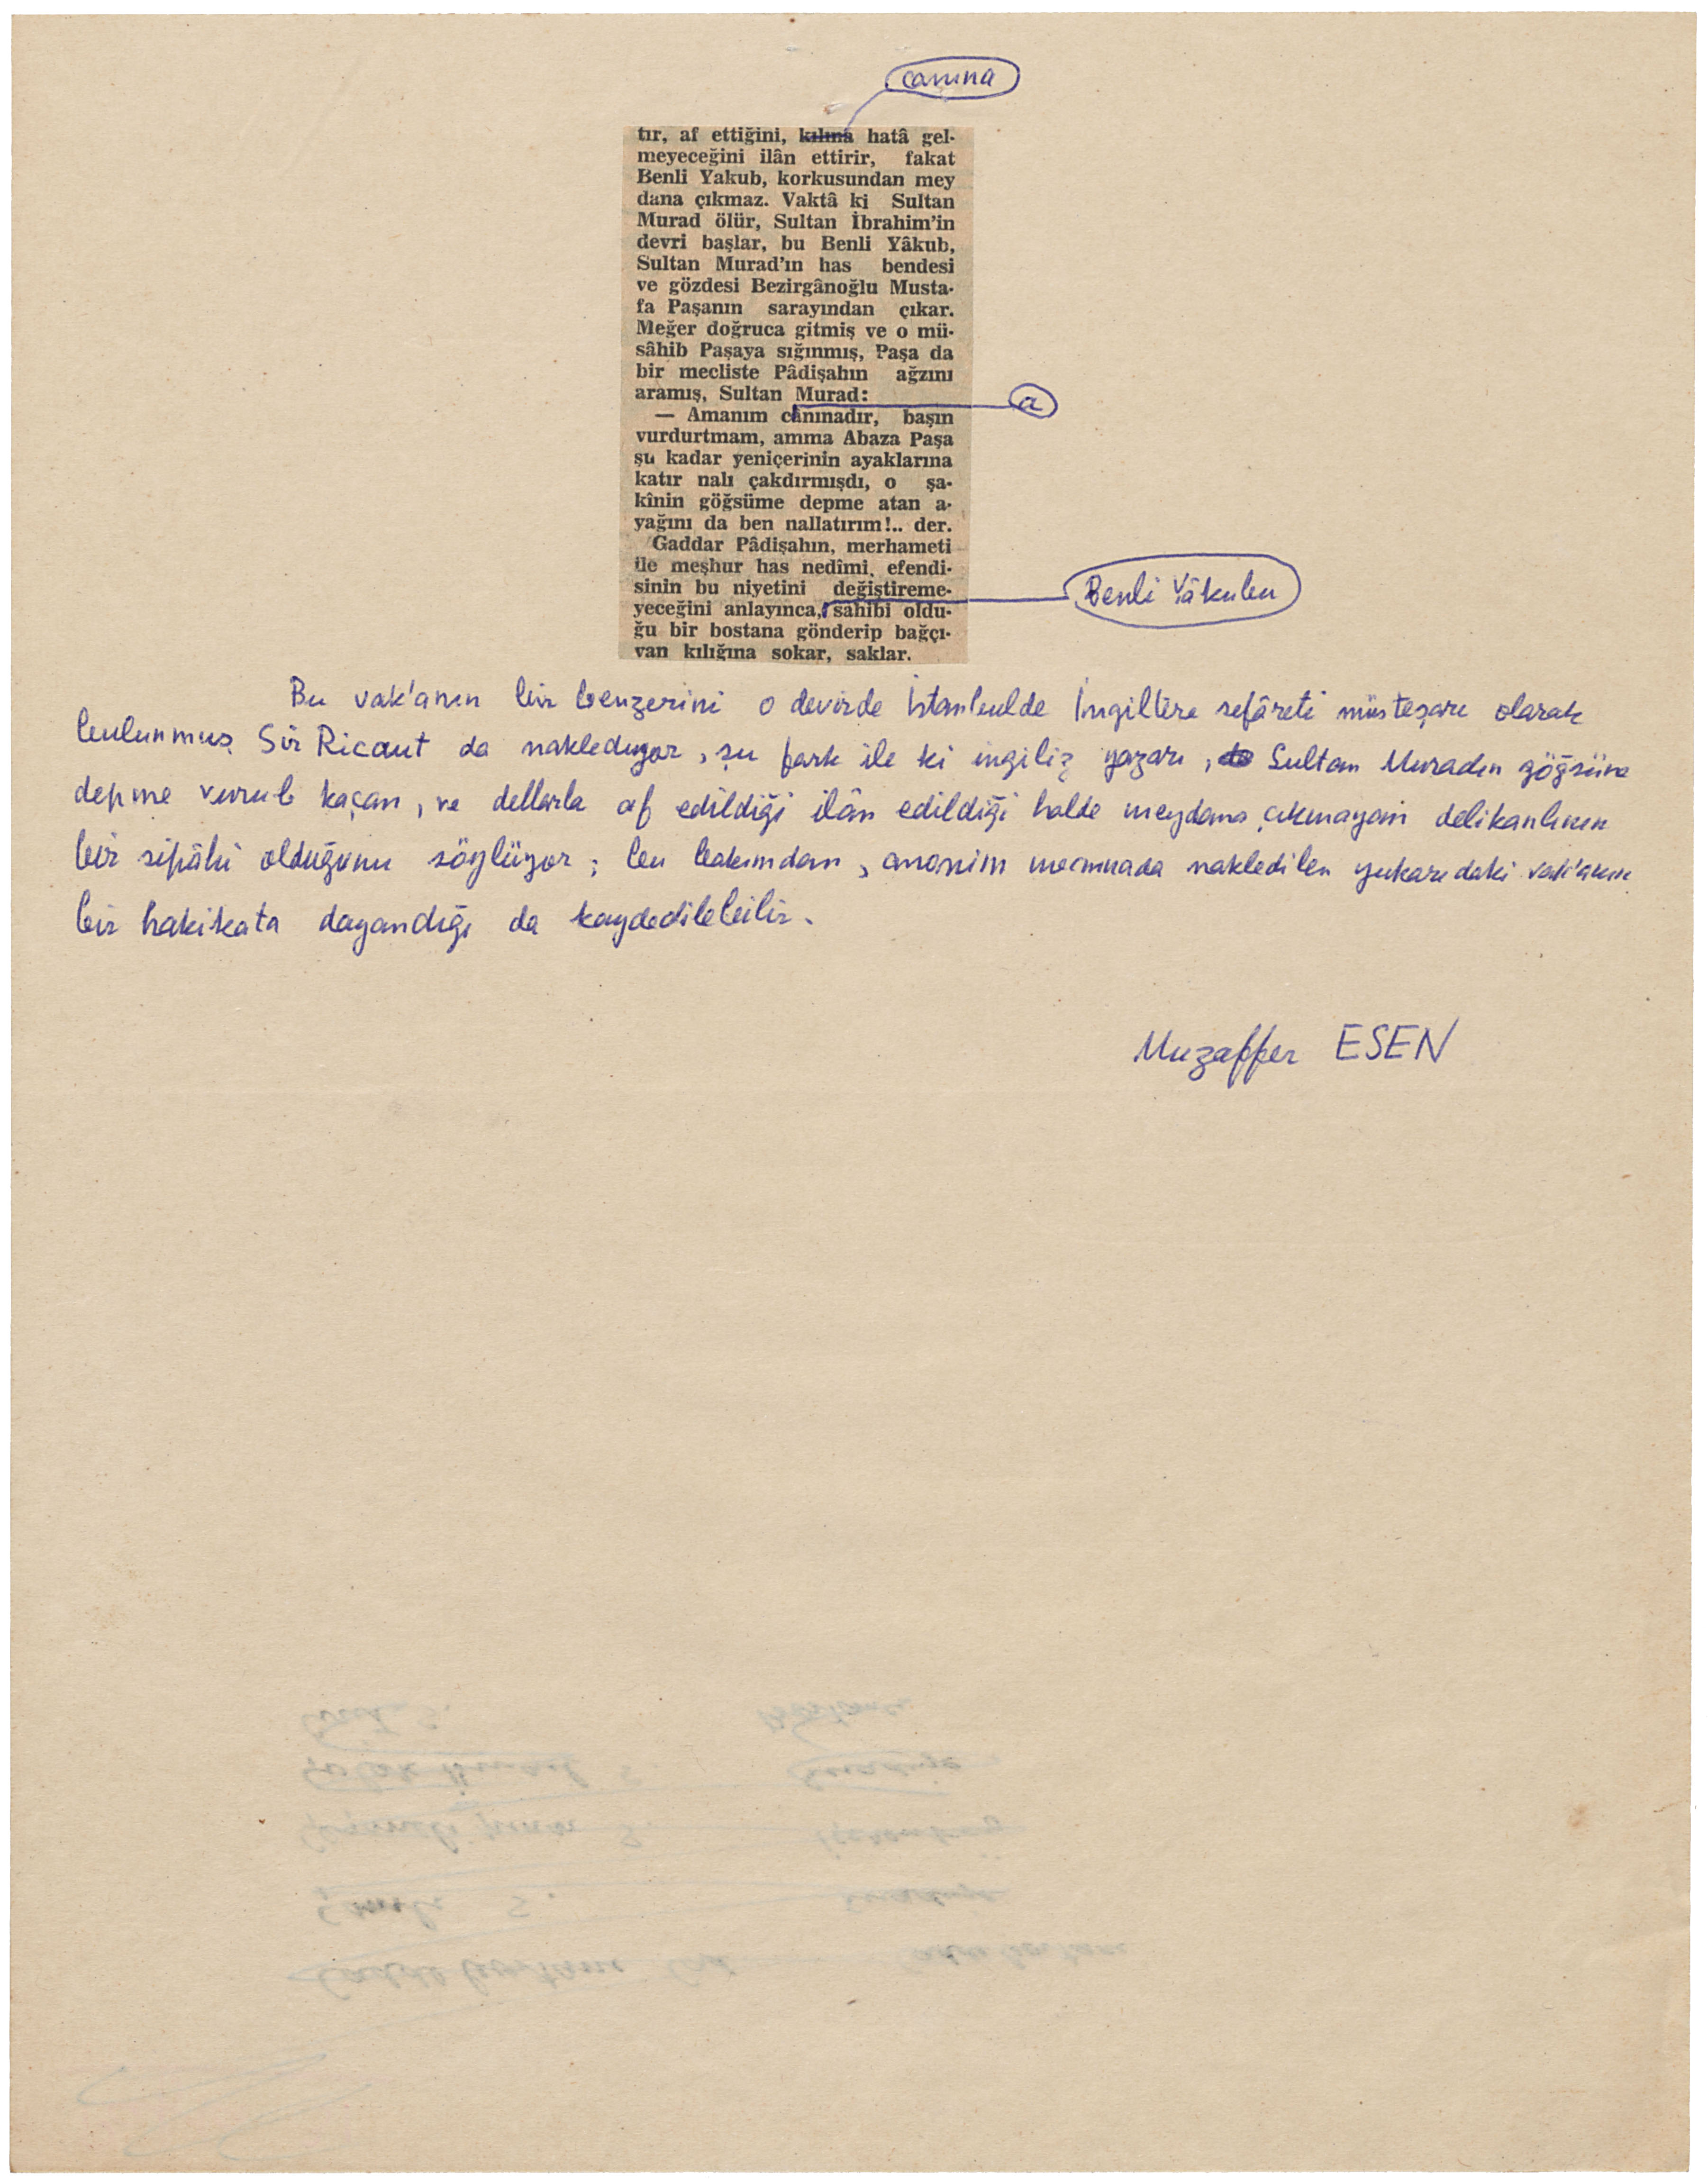 canına
tır, af ettiğini, kılına hatâ gel-
meyeceğini ilân ettirir, fakat
Benli Yakub, korkusundan mey
dana çıkmaz. Vaktâ ki Sultan
Murad ölür, Sultan İbrahim'in
devri başlar, bu Benli Yâkub,
Sultan Murad'ın has bendesi
ve gözdesi Bezirgânoğlu Musta-
fa Paşanın sarayından çıkar.
Meğer doğruca gitmiş ve o mü-
sâhib Paşaya sığınmış, Paşa da
bir mecliste Pâdişahın ağzını
aramış, Sultan Murad:
a
— Amanım cânınadır, başın
vurdurtmam, amma Abaza Paşa
şu kadar yeniçerinin ayaklarına
katır nalı çakdırmışdı, o şa-
kînin göğsüme depme atan a-
yağını da ben nallatırım!.. der.
Gaddar Pâdişahın, merhameti
ile meşhur has nedîmi, efendi-
sinin bu niyetini değiştireme-
Benli Yâkubu
yeceğini anlayınca, sahibi oldu-
ğu bir bostana gönderip bağçı-
van kılığına sokar, saklar.
Bu vak'anın bir benzerini o devirde İstanbulda İngiltere sefâreti müsteşarı olarak
bulunmuş Sir Ricaut da naklediyor, şu fark ile ki ingiliz yazarı, Sultan Muradın göğsüne
depme vurub kaçan, ve dellarla af edildiği ilân edildiği halde meydana çıkmayan delikanlının
bir sipâhi olduğunu söylüyor; bu bakımdan, anonim mecmuada nakledilen yukarıdaki vak'anın
bir hakikata dayandığı da kaydedilebilir.
Muzaffer ESEN